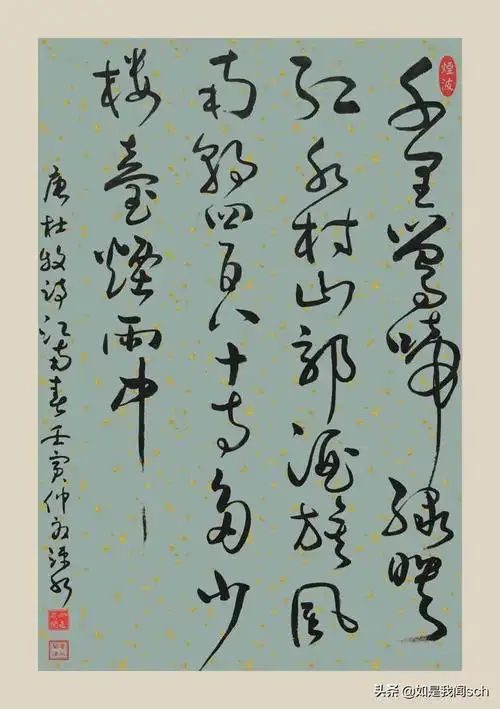 煙波
千里鶯啼綠暎
红水村山郭酒旗風
南朝四百八十寺多少
楼臺煙雨中
唐杜牧诗江南春壬寅仲
头条 @如是我闻sch